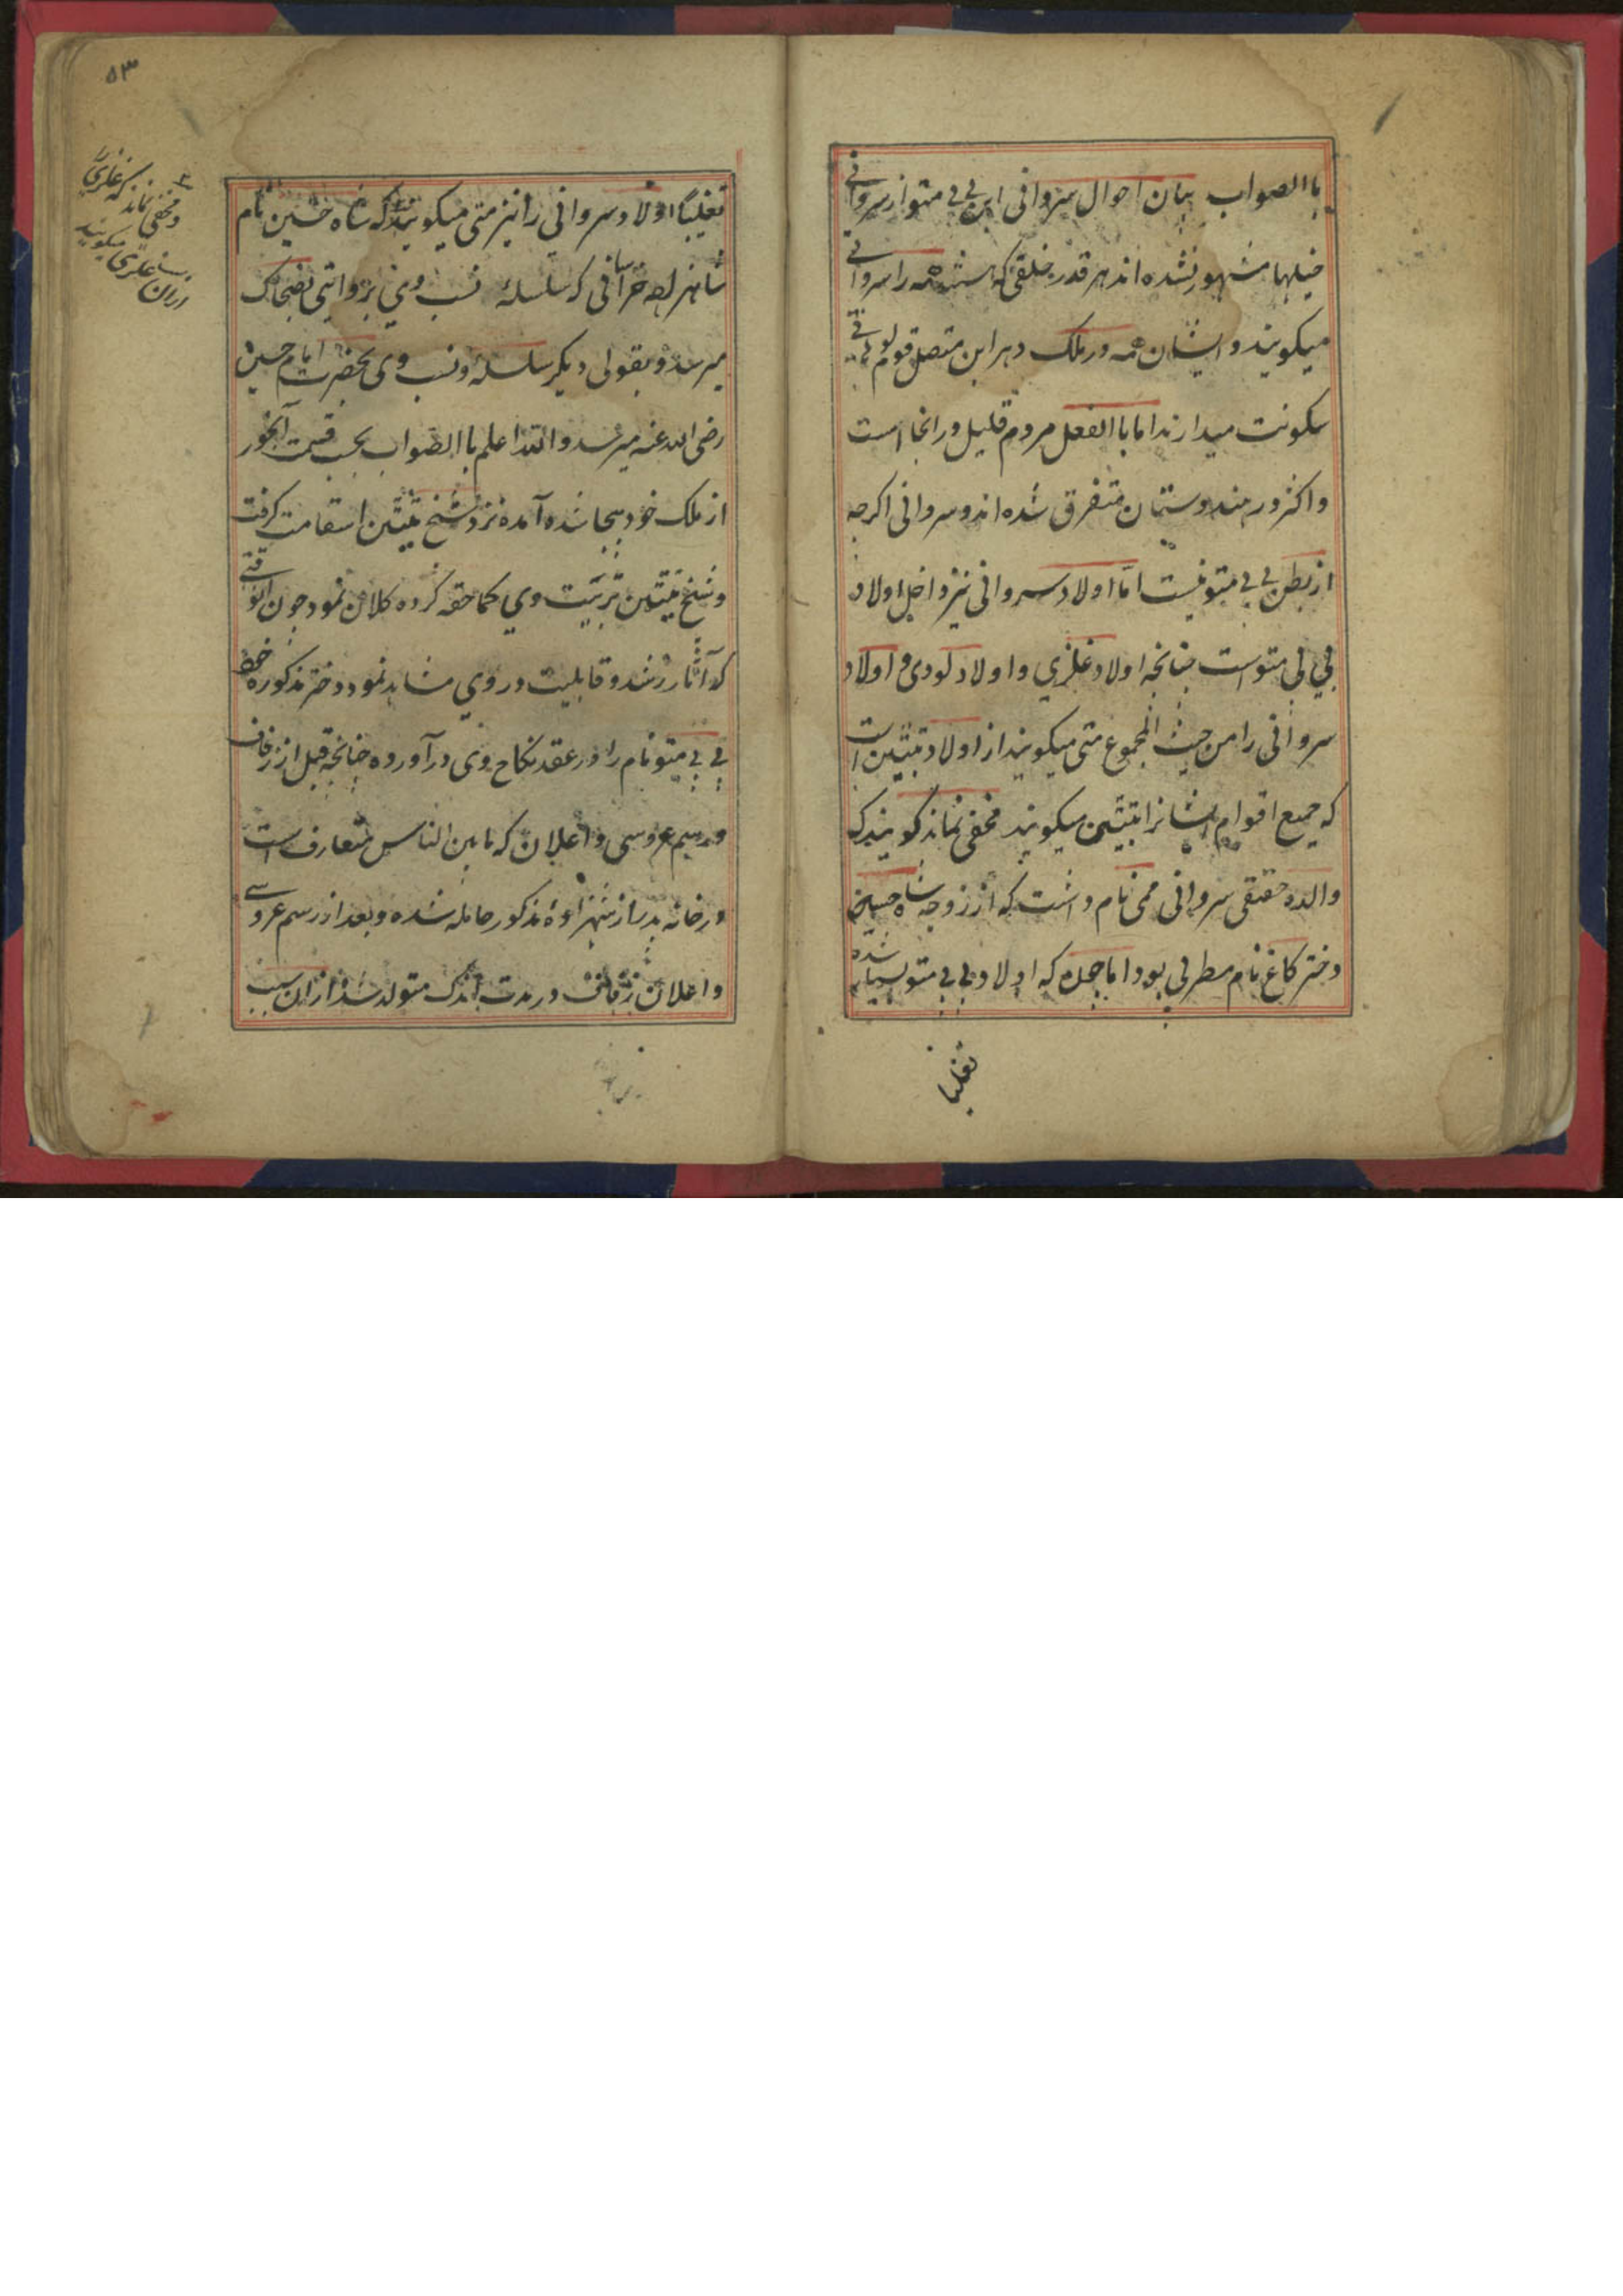 باالصواب بیان احوال سروانی ابن بی بی متو از سروانی
خیلها مشهور نشده اند هر قدر خلقی که هست همه را سروانی
میکویند و ایشان همه در ملک درابن متصل قوم لوانی
سکونت میدارند اما باالفعل مردم قلیل در انجا است
و اکثر در هندوستان متفرق شده اند و سروانی اکرچه
از بطن بی بی متو نیست اما اولاد سروانی نیز داخل اولاد
بی بی متو است چنانچه اولاد غلزی و اولاد لودی و اولاد
سروانی را من حیث المجموع متی میکویند از اولاد تبتین است
که جمیع اقوام ایشانرا تبتین میکویند مخفی نماند کویند که
والده حقیقی سروانی ممی نام داشت که از زوجه شاه حسین
دختر کاغ نام مطربی بود اما چون که اولاد بی بی متو بسیار شده
تغلیبا
۵۳
تغلیبًا اولاد سروانی را نیز متی میکویند که شاه حسین نام
شاهزاده خراسانی که سلسله نسب وی بروایتی بضحاک
میرسد و بقولی دیکر سلسله و نسب وی بحضرت امام حسین
رضی الله عنه میرسد و الله اعلم باالصواب بحسب قسمت آبخور
از ملک خود بیجا شده آمده نزد شیخ تبتین استقامت کرفت
و شیخ تبتین تربیت وی کماحقه کرده کلان نمود چون الوقتی
که آثار رشد و قابلیت در وی مشاهد نمود دختر مذکوره خود
بی بی متو نام را در عقد نکاح وی درآورده چنانچه قبل از زفاف
و رسیم عروسی و اعلان که مابین الناس متعارف است
در خانه پدر از شهزاده مذکور حامله شده و بعد از رسم عروسی
و اعلان زفاف در مدت اندک متولد شد از ان سبب
و مخفی نماند که غلزی
ازان غلزی میکویند